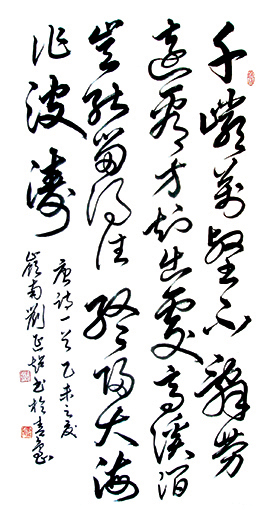 千巖萬壑不辭勞
遠看方知出處高溪澗
豈能留得住終歸大海
作波濤
唐詩一首乙未之夏
嶺南劉延書於青